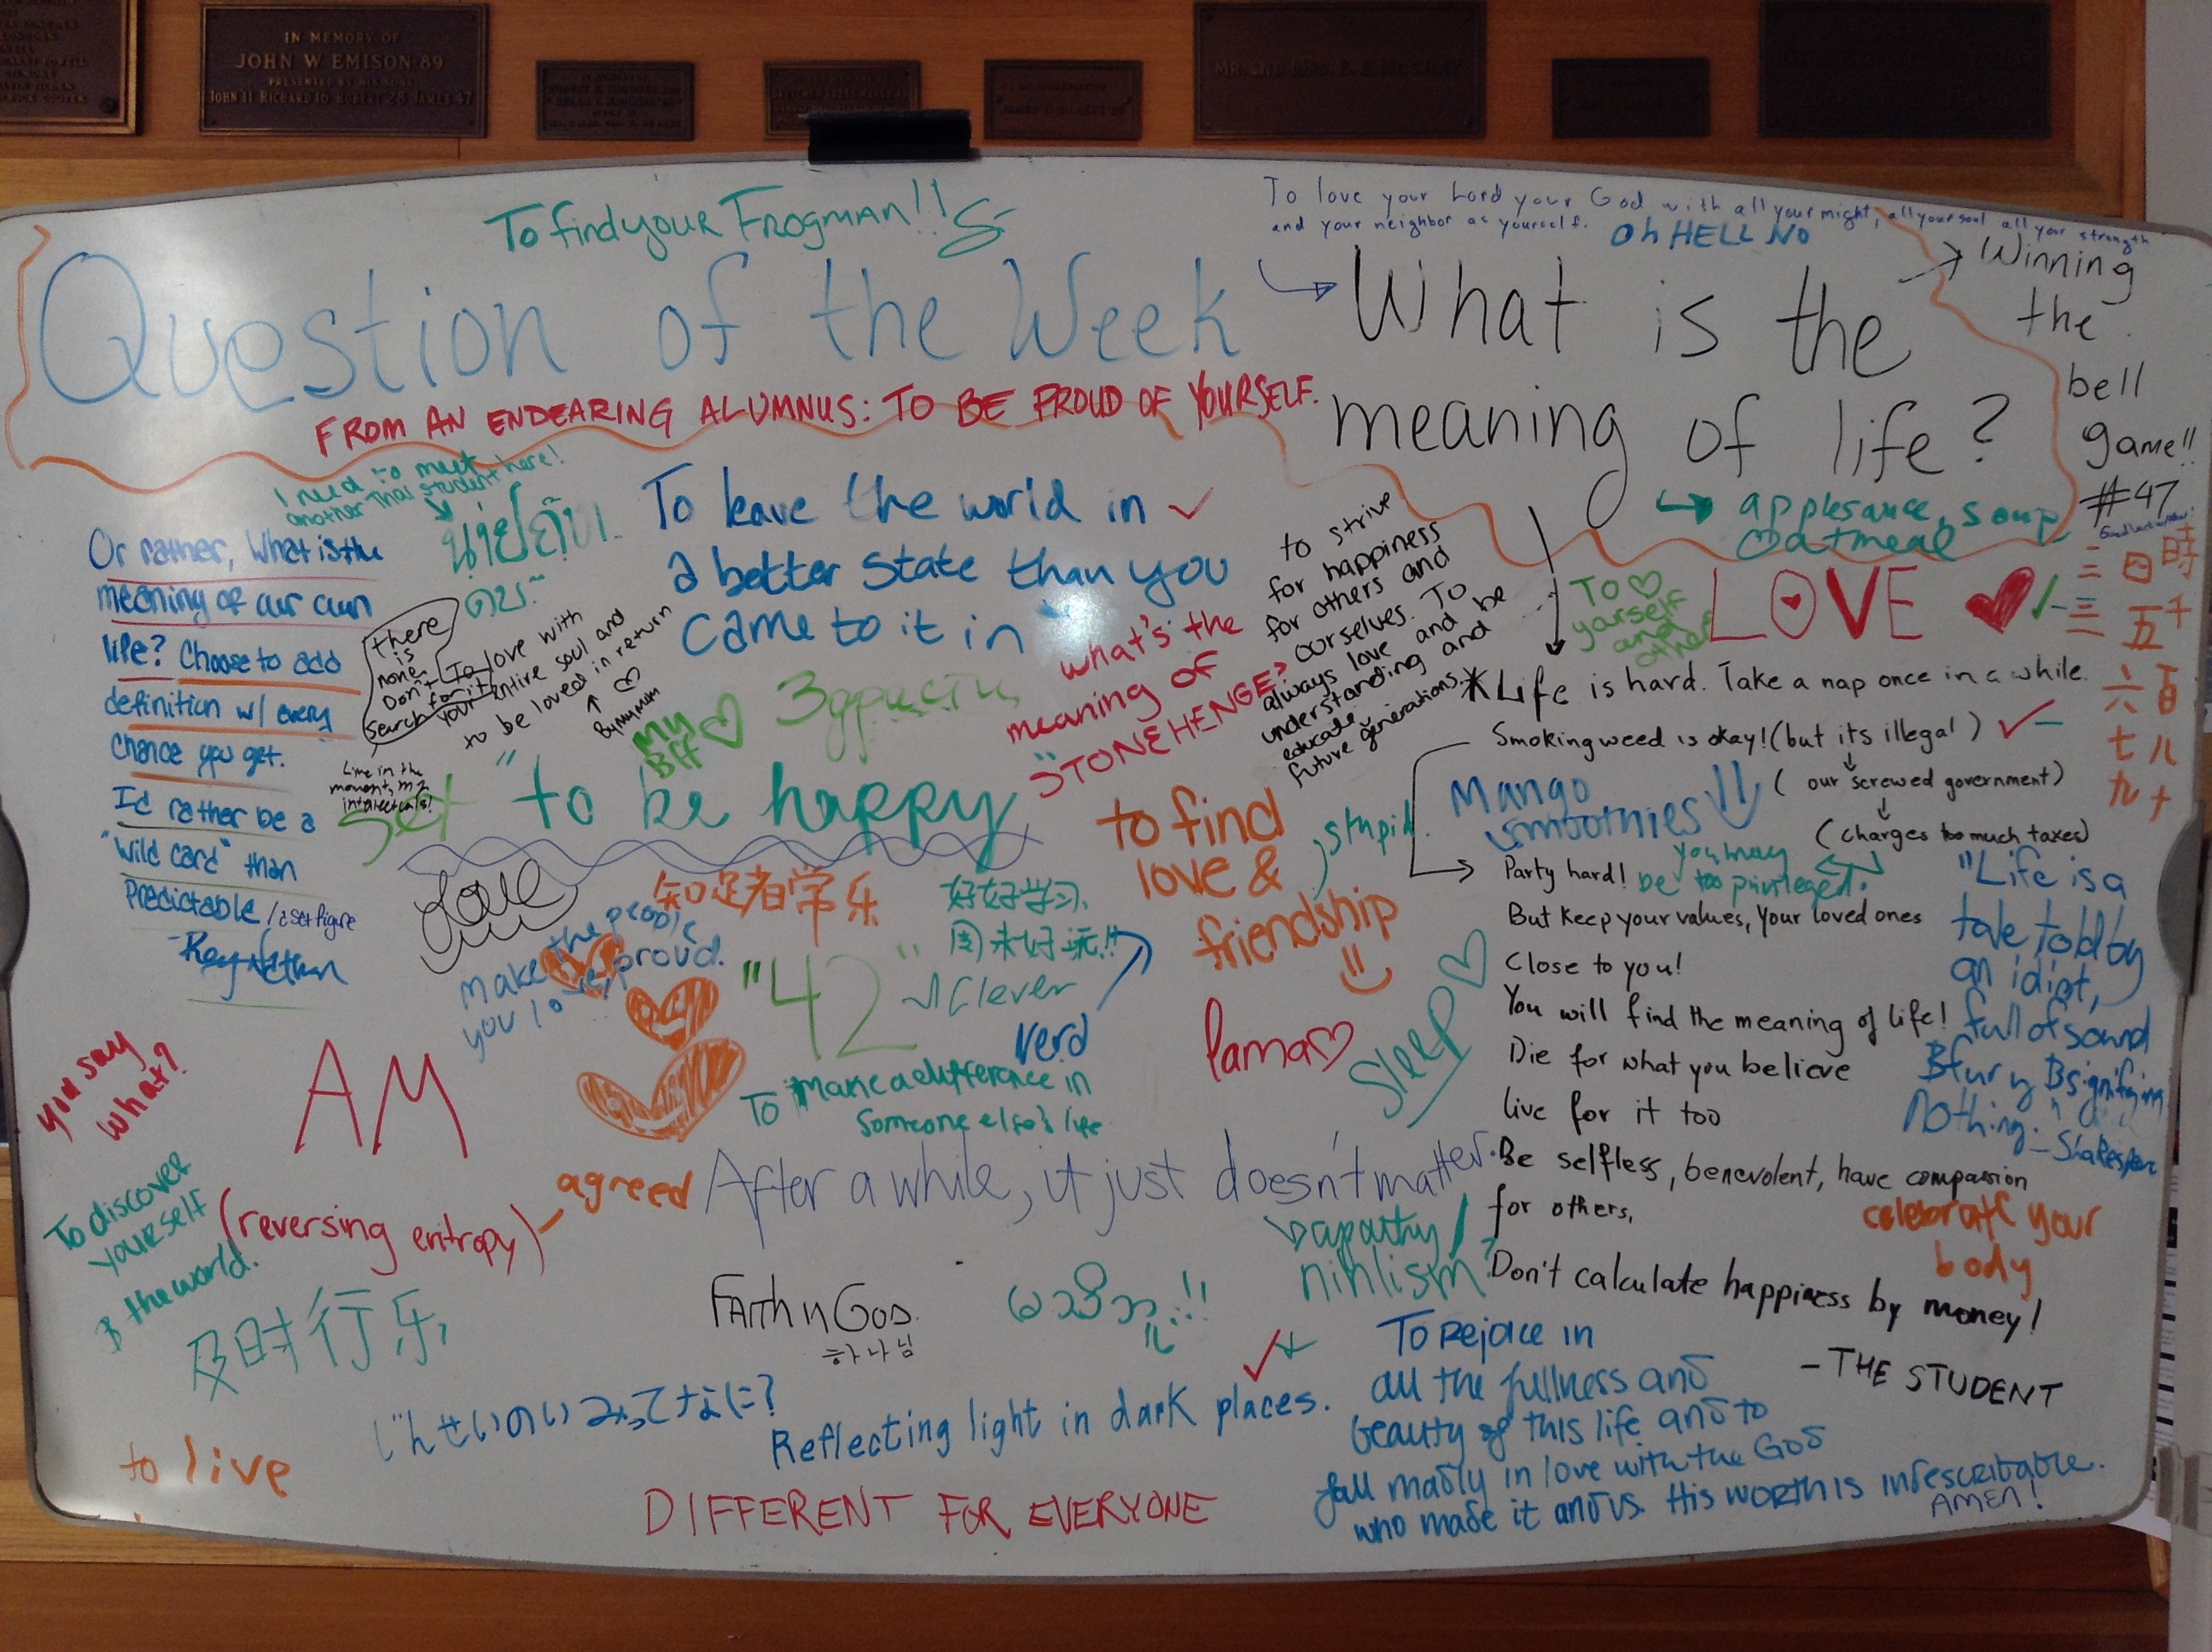 IN MEMORY OF
JOHN W EMISON 89
PRESENTED BY HIS SONS
JOHN 11 RICHARD 16 ROBERT 28 JAMES 47
To find your Frogman!!
To love your Lord your God with all your might, all your soul all your strength
and your neighbor as yourself.
Oh HELL NO
Question of the Week
What is the
meaning of life?
Winning
the
bell
game!!
#47
FROM AN ENDEARING ALUMNUS: TO BE PROUD OF YOURSELF.
applesauce, soup
Oatmeal
I need to meet
another Thai student here!
Or rather, What is the
meaning of our own
life? Choose to add
definition w/ every
chance you get.
I'd rather be a
"Wild card" than
Predictable / a set figure
there
is
none.
Don't
search for it
To love with
your entire soul and
to be loved in return
Live in the
moment, my
intellectuals!
To leave the world in
a better state than you
came to it in
to strive
for happiness
for others and
ourselves. To
always love and be
understanding and
educate
future generations.
what's the
meaning of
STONEHENGE?
To ♡
yourself
and
others
LOVE
二 日 時
三 五 千
六 百
七 八
九 十
my
BFF
Здрасти
Sex
"to be happy
Love
*Life is hard. Take a nap once in a while.
Smoking weed is okay! (but its illegal)
(our screwed government)
(charges too much taxes)
Mango
smoothies
stupid.
Party hard!
you may
be too privileged.
But keep your values, your loved ones
Close to you!
You will find the meaning of life!
Die for what you believe
live for it too
Be selfless, benevolent, have compassion
for others,
Don't calculate happiness by money!
- THE STUDENT
to find
love &
friendship
知足者常乐
好好学习,
周末好玩!!
make the people
you love proud.
"42"
Clever
Verd
To make a difference in
someone else's life
lama♡
Sleep
"Life is a
tale told by
an idiot,
full of sound
& fury & signifying
nothing."
- Shakespeare
you say
what?
AM
(reversing entropy)
agreed
After a while, it just doesn't matter.
apathy /
nihlism?
celebrate your
body
To discover
yourself
& the world.
及时行乐
FAITH n GOD
하나님
じんせいのいみってなに?
Reflecting light in dark places.
To Rejoice in
all the fullness and
beauty of this life and to
fall madly in love with the God
who made it and us. His worth is indescribable.
AMEN!
to live
DIFFERENT FOR EVERYONE